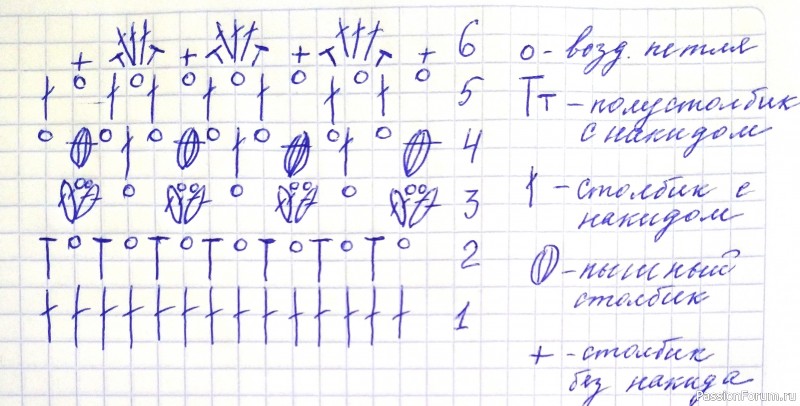 6
5
4
3
2
1
o - возд. петля
Тт - полустолбик
с накидом
- столбик с
накидом
- пышный
столбик
+ - столбик
без накида
PassionForum.ru